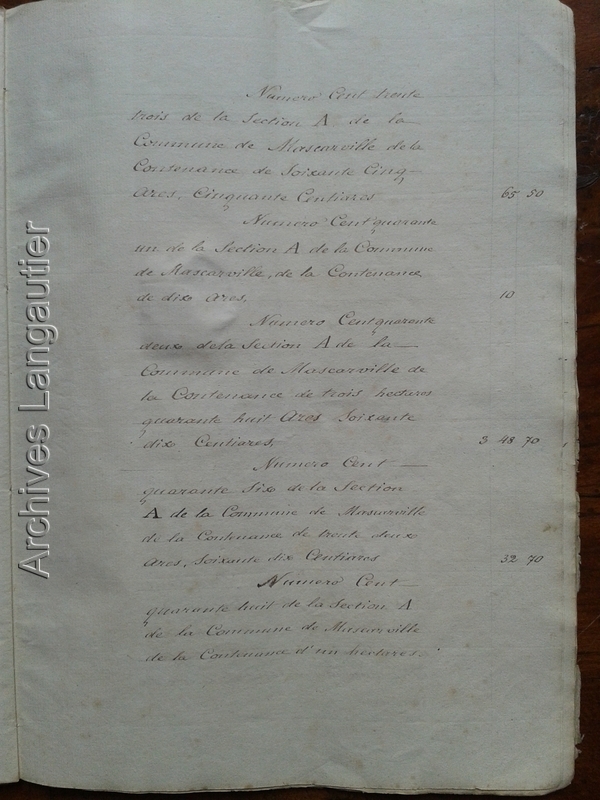 Numero Cent trente
trois de la Section A de la
Commune de Mascarville de la
Contenance de Soixante Cinq
Ares, Cinquante Centiares 65 50
Numero Cent quarante
un de la Section A de la Commune
de Mascarville, de la Contenance
de dix Ares, 10
Numero Cent quarante
deux de la Section A de la
Commune de Mascarville de
la Contenance de trois hectares
quarante huit Ares Soixante
dix Centiares, 3 48 70
Numero Cent
quarante Six de la Section
A de la Commune de Mascarville
de la Contenance de trente deux
Ares, Soixante dix Centiares 32 70
Numero Cent
quarante huit de la Section A
de la Commune de Mascarville
de la Contenance d'un hectares.
Archives Langautier